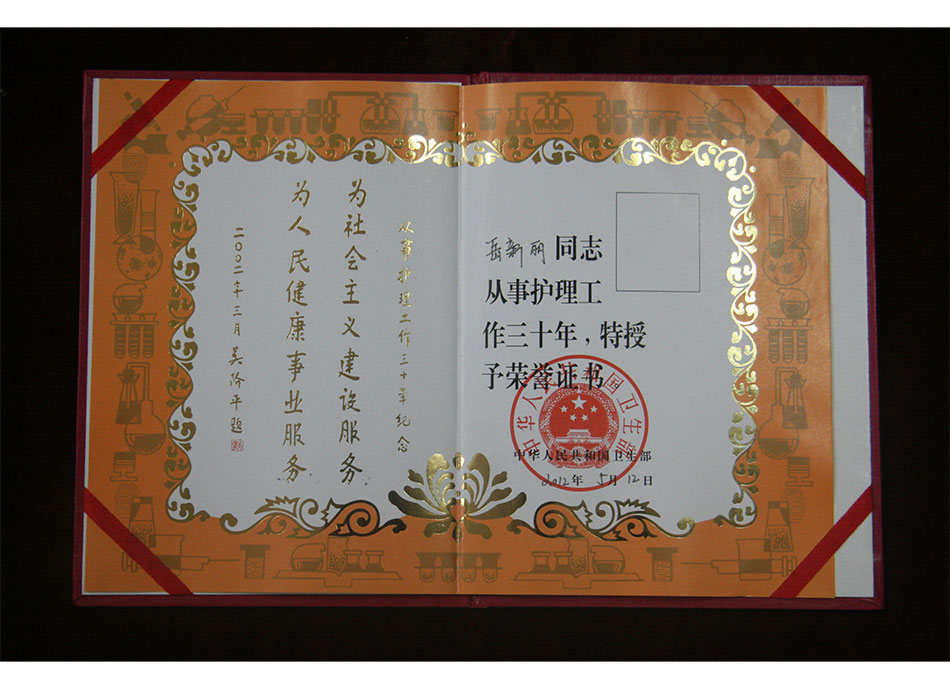 从事护理工作三十年纪念
为社会主义建设服务
为人民健康事业服务
二〇〇二年三月 吴阶平题
岳新丽同志
从事护理工
作三十年，特授
予荣誉证书
中华人民共和国卫生部
中华人民共和国卫生部
2012年5月12日